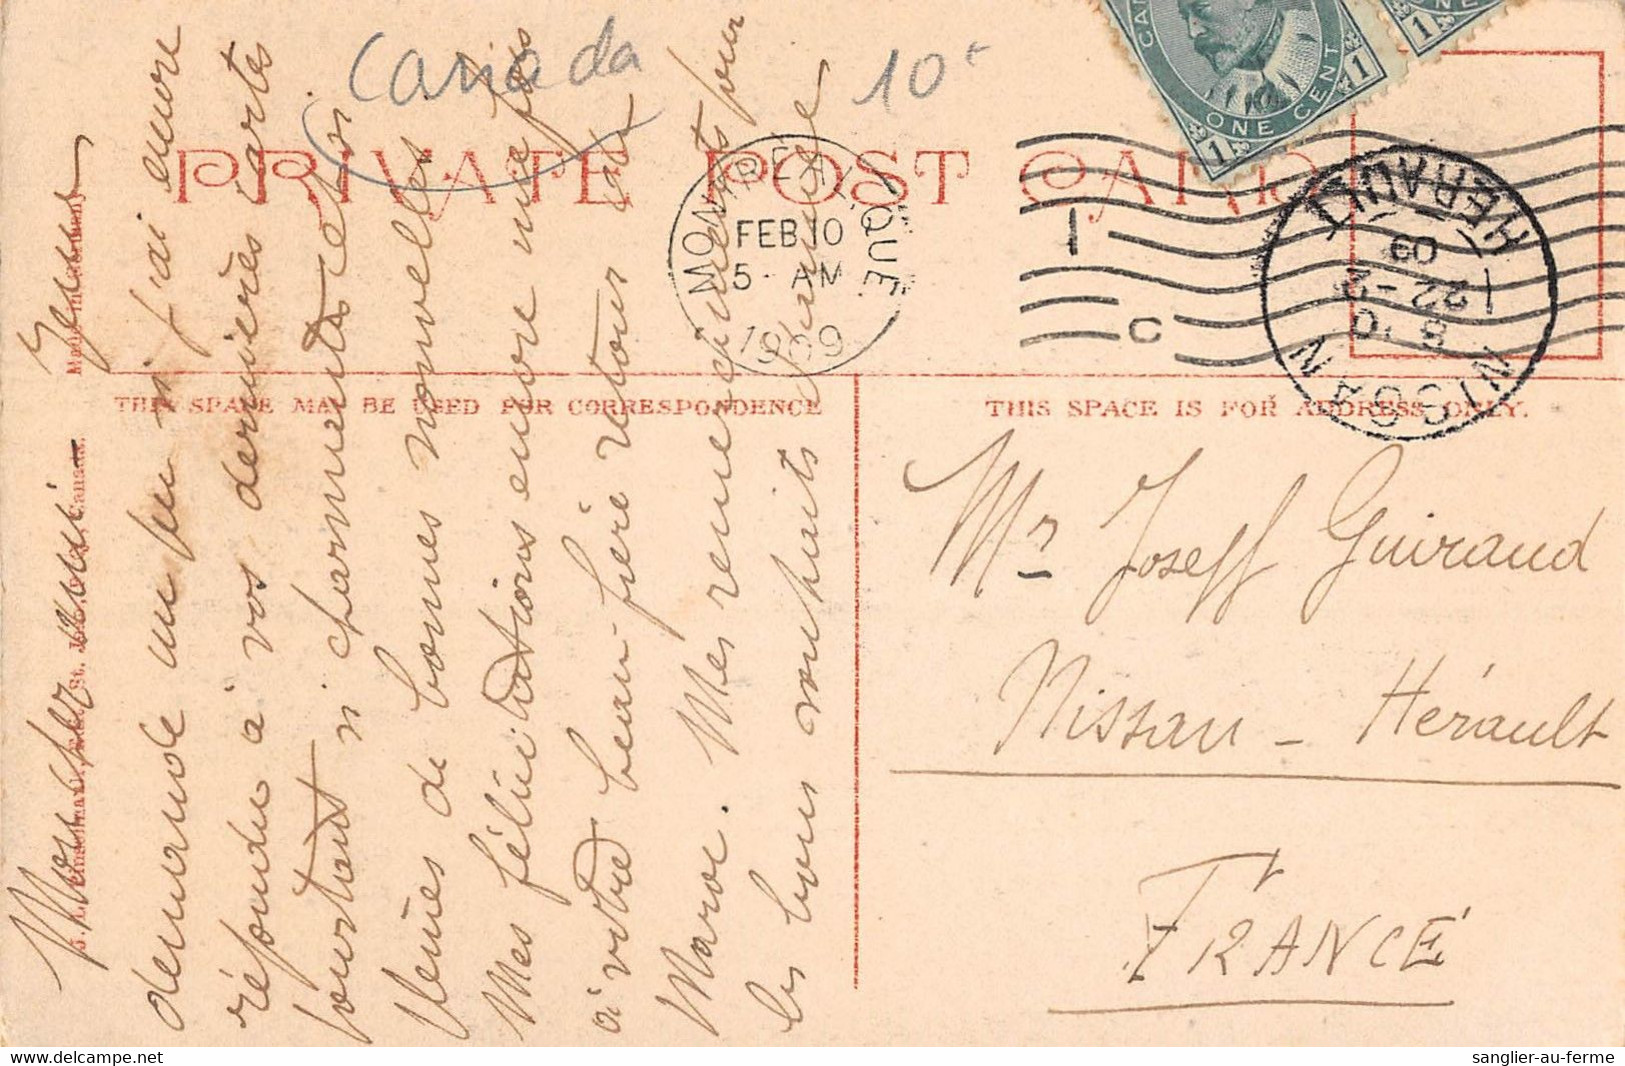 Canada
10 F
PRIVATE POST CARD
CANADA
ONE CENT
1
1
ONE CENT
1
MONTREAL, QUE.
FEB 10
5 - AM
1909
I
C
NISSAN
HERAULT
22-2
09
THIS SPACE MAY BE USED FOR CORRESPONDENCE
THIS SPACE IS FOR ADDRESS ONLY.
Mon cher ami - Je me
demande un peu si j'ai encore
répondu à vos dernières cartes
pourtant si charmantes et si
pleines de bonnes nouvelles
Mes félicitations encore une fois
à votre beau-frère retour du
Maroc. Mes remerciements pour
les bons souhaits
Mr Joseff Guiraud
Nissan - Hérault
FRANCE
sanglier-au-ferme